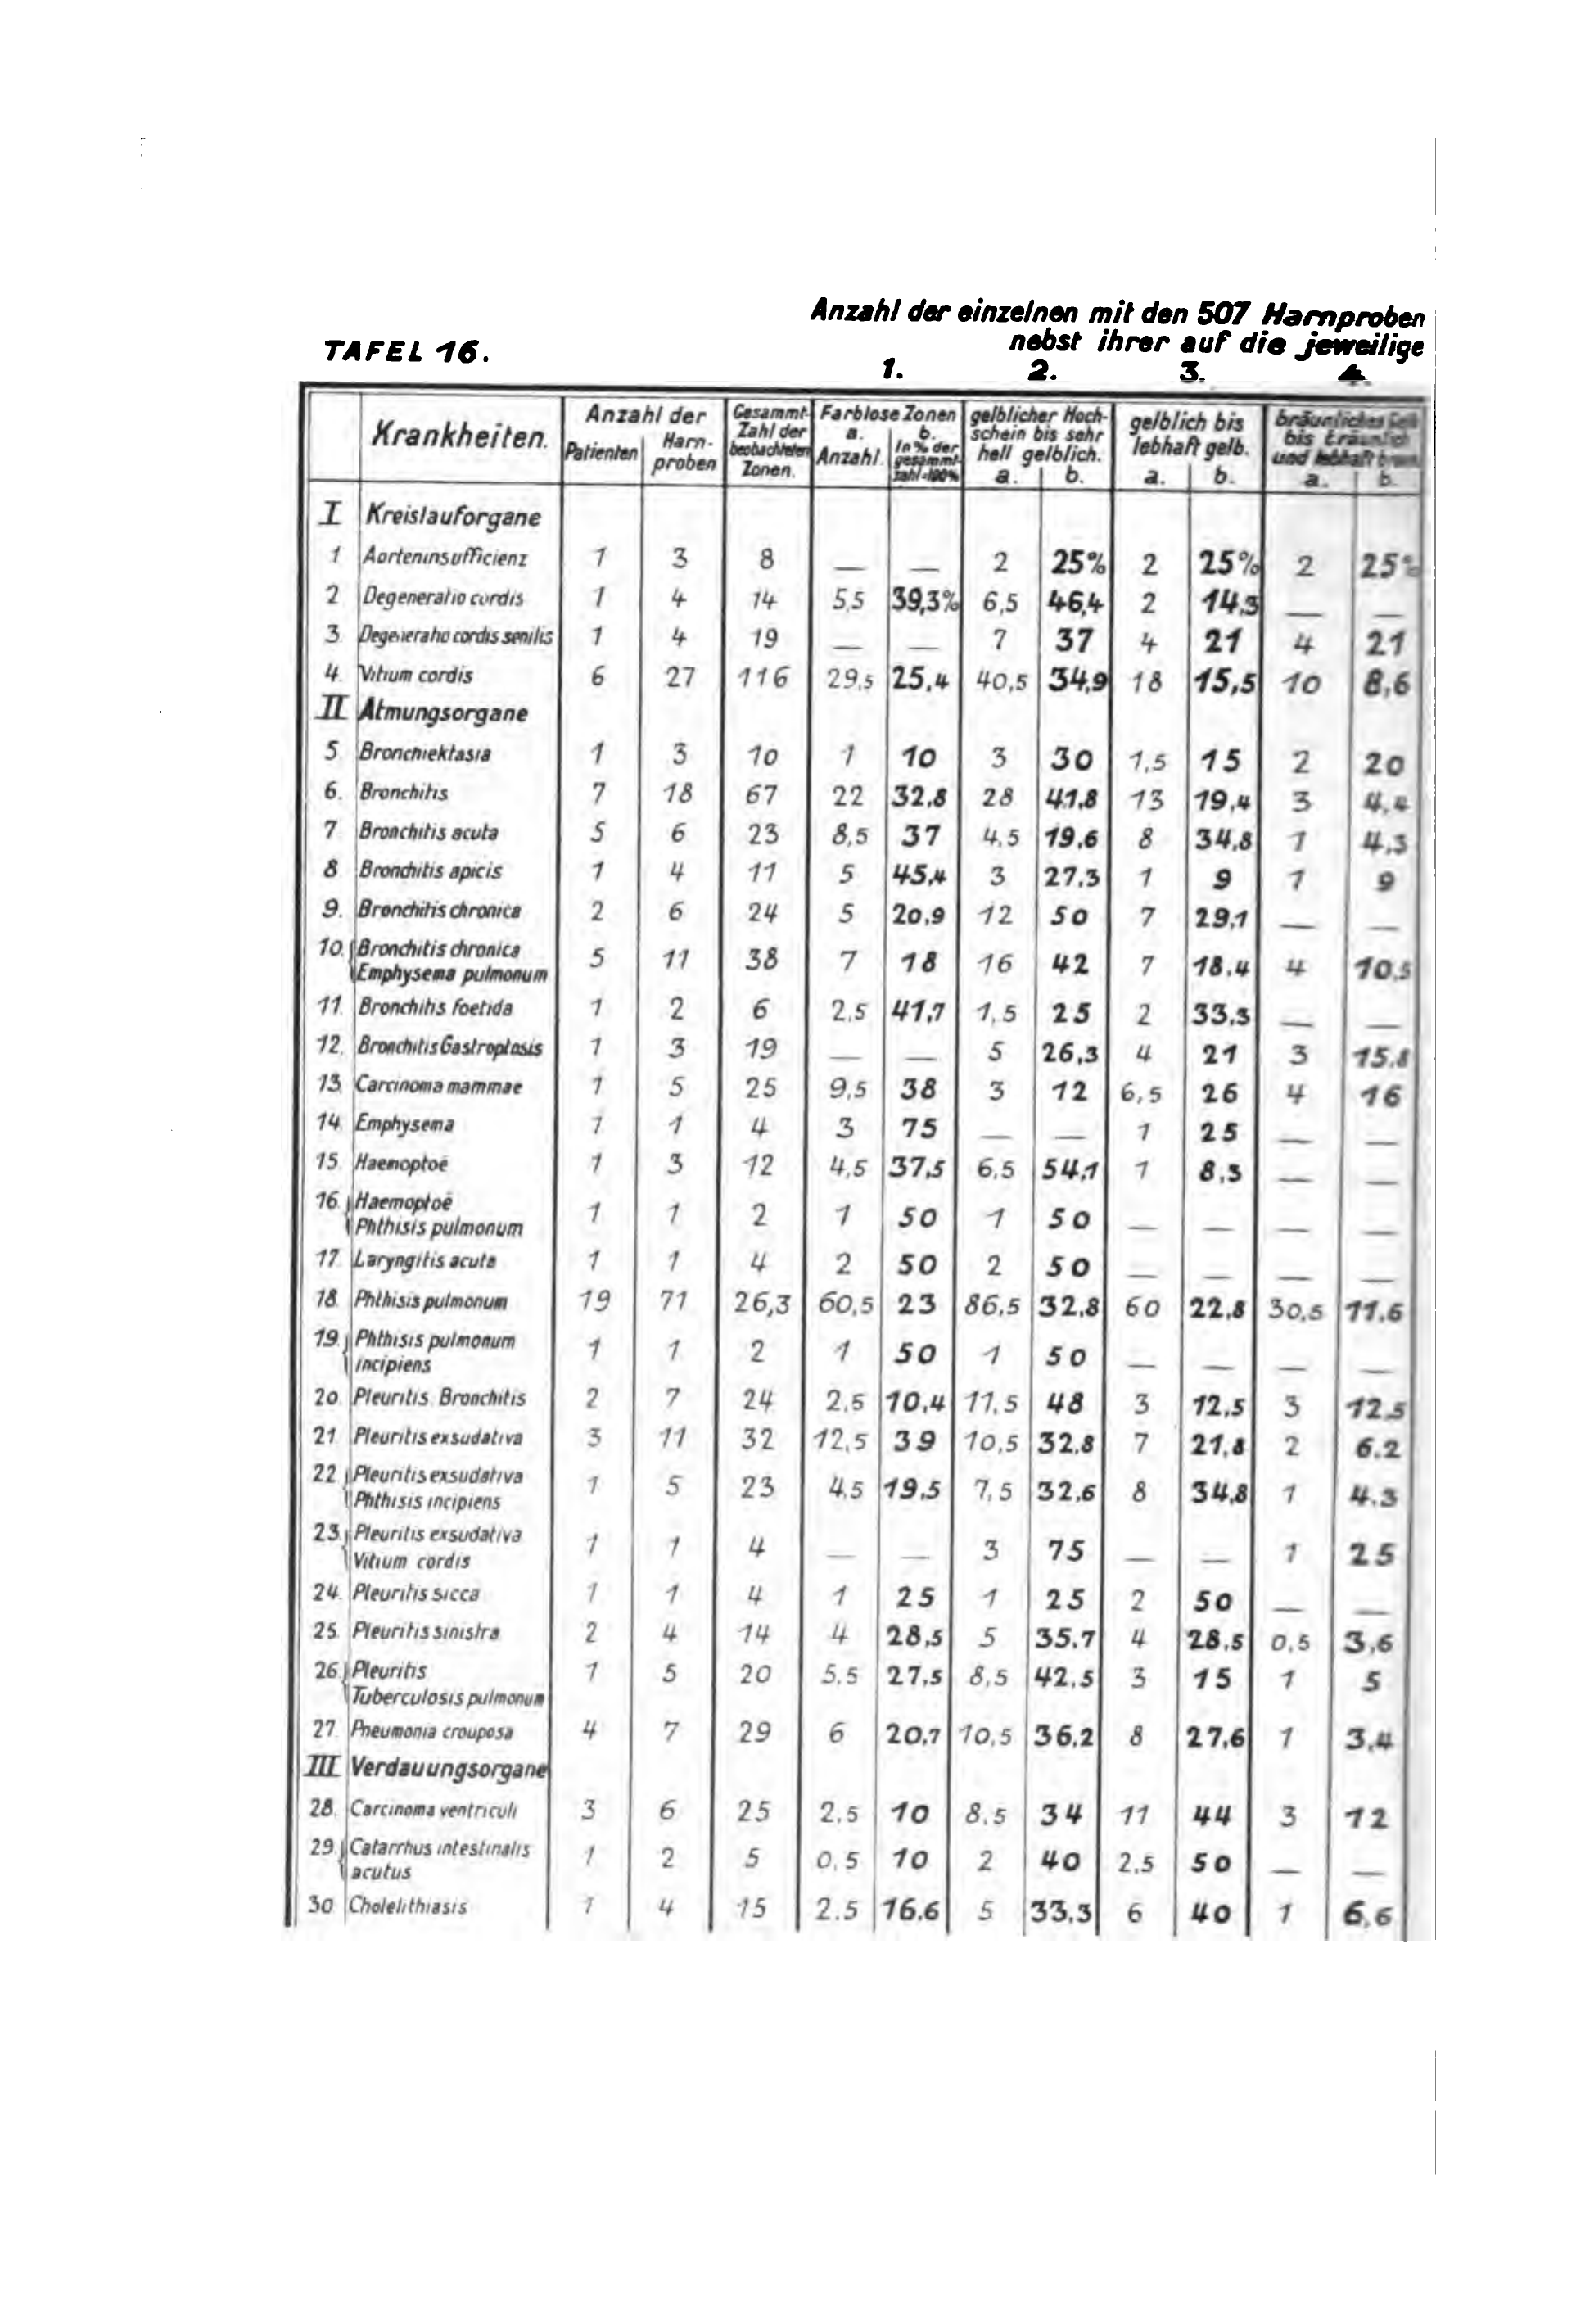 Anzahl der einzelnen mit den 507 Harnproben
nebst ihrer auf die jeweilige
TAFEL 16.
1. 2. 3. 4.
Krankheiten. Anzahl der Patienten Harn-proben Gesammt-Zahl der beobachteten Zonen. Farblose Zonen a. Anzahl. b. In % der gesammt-zahl=100% gelblicher Hoch-schein bis sehr hell gelblich. a. b. gelblich bis lebhaft gelb. a. b. bräunliches Gelb bis bräunlich und lebhaft braun. a. b.
I Kreislauforgane
1 Aorteninsufficienz 1 3 8 — — 2 25% 2 25% 2 25%
2 Degeneratio cordis 1 4 14 5,5 39,3% 6,5 46,4 2 14,3 — —
3. Degeneratio cordis senilis 1 4 19 — — 7 37 4 21 4 21
4. Vitium cordis 6 27 116 29,5 25,4 40,5 34,9 18 15,5 10 8,6
II Atmungsorgane
5. Bronchiektasia 1 3 10 1 10 3 30 1,5 15 2 20
6. Bronchitis 7 18 67 22 32,8 28 41,8 13 19,4 3 4,4
7. Bronchitis acuta 5 6 23 8,5 37 4,5 19,6 8 34,8 1 4,3
8 Bronchitis apicis 1 4 11 5 45,4 3 27,3 1 9 1 9
9. Bronchitis chronica 2 6 24 5 20,9 12 50 7 29,1 — —
10. Bronchitis chronica
Emphysema pulmonum 5 11 38 7 18 16 42 7 18.4 4 10,5
11. Bronchitis foetida 1 2 6 2,5 41,7 1,5 25 2 33,3 — —
12. Bronchitis Gastroptosis 1 3 19 — — 5 26,3 4 21 3 15.8
13. Carcinoma mammae 1 5 25 9,5 38 3 12 6,5 26 4 16
14. Emphysema 1 1 4 3 75 — — 1 25 — —
15. Haemoptoë 1 3 12 4,5 37,5 6,5 54,1 1 8,3 — —
16. Haemoptoë
Phthisis pulmonum 1 1 2 1 50 1 50 — — — —
17. Laryngitis acuta 1 1 4 2 50 2 50 — — — —
18. Phthisis pulmonum 19 71 26,3 60,5 23 86,5 32,8 60 22,8 30,5 11.6
19. Phthisis pulmonum
incipiens 1 1 2 1 50 1 50 — — — —
20. Pleuritis. Bronchitis 2 7 24 2,5 10,4 11,5 48 3 12,5 3 12,5
21. Pleuritis exsudativa 3 11 32 12,5 39 10,5 32,8 7 21,8 2 6.2
22. Pleuritis exsudativa
Phthisis incipiens 1 5 23 4,5 19,5 7,5 32,6 8 34,8 1 4.3
23. Pleuritis exsudativa
Vitium cordis 1 1 4 — — 3 75 — — 1 25
24. Pleuritis sicca 1 1 4 1 25 1 25 2 50 — —
25. Pleuritis sinistra 2 4 14 4 28,5 5 35.7 4 28.5 0,5 3,6
26. Pleuritis
Tuberculosis pulmonum 1 5 20 5,5 27,5 8,5 42,5 3 15 1 5
27. Pneumonia crouposa 4 7 29 6 20,7 10,5 36,2 8 27,6 1 3,4
III Verdauungsorgane
28. Carcinoma ventriculi 3 6 25 2,5 10 8,5 34 11 44 3 12
29. Catarrhus intestinalis
acutus 1 2 5 0,5 10 2 40 2,5 50 — —
30 Cholelithiasis 1 4 15 2.5 16.6 5 33,3 6 40 1 6,6